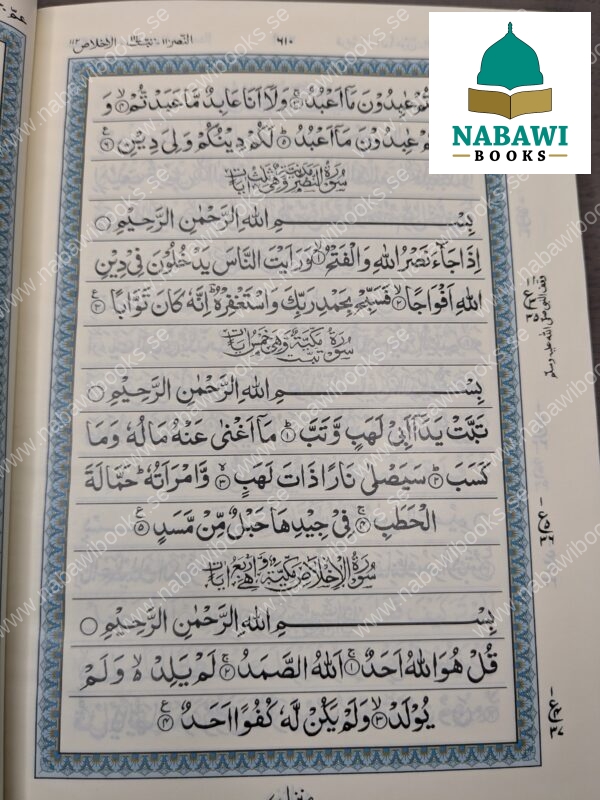 النصر ١١٠ تبت ١١١ الاخلاص ١١٢
٦١٠
NABAWI
BOOKS
عٰبِدُوْنَ مَاۤ اَعْبُدُ ۚ﴿۳﴾ وَلَاۤ اَنَا عَابِدٌ مَّا عَبَدْتُّمْ ۙ﴿۴﴾ وَ
عٰبِدُوْنَ مَاۤ اَعْبُدُ ؕ﴿۵﴾ لَكُمْ دِيْنُكُمْ وَلِيَ دِيْنِ ﴿۶﴾
سُوْرَةُ النَّصْرِ مَدَنِيَّةٌ وَّهِيَ ثَلٰثُ اٰيَاتٍ
بِسْـــــــمِ اللهِ الرَّحْمٰنِ الرَّحِيْمِ ○
اِذَا جَآءَ نَصْرُ اللهِ وَالْفَتْحُ ۙ﴿۱﴾ وَرَاَيْتَ النَّاسَ يَدْخُلُوْنَ فِيْ دِيْنِ
اللهِ اَفْوَاجًا ۙ﴿۲﴾ فَسَبِّحْ بِحَمْدِ رَبِّكَ وَاسْتَغْفِرْهُ ؔؕ اِنَّهٗ كَانَ تَوَّابًا ﴿۳﴾
سُوْرَةُ تَبَّتْ مَكِّيَّةٌ وَّهِيَ خَمْسُ اٰيَاتٍ
بِسْـــــــمِ اللهِ الرَّحْمٰنِ الرَّحِيْمِ ○
تَبَّتْ يَدَاۤ اَبِيْ لَهَبٍ وَّتَبَّ ؕ﴿۱﴾ مَاۤ اَغْنٰى عَنْهُ مَالُهٗ وَمَا
كَسَبَ ؕ﴿۲﴾ سَيَصْلٰى نَارًا ذَاتَ لَهَبٍ ۚۖ﴿۳﴾ وَّامْرَاَتُهٗ ؕ حَمَّالَةَ
الْحَطَبِ ۚ﴿۴﴾ فِيْ جِيْدِهَا حَبْلٌ مِّنْ مَّسَدٍ ﴿۵﴾
سُوْرَةُ الْاِخْلَاصِ مَكِّيَّةٌ وَّهِيَ اَرْبَعُ اٰيَاتٍ
بِسْـــــــمِ اللهِ الرَّحْمٰنِ الرَّحِيْمِ ○
قُلْ هُوَ اللهُ اَحَدٌ ۚ﴿۱﴾ اَللهُ الصَّمَدُ ۚ﴿۲﴾ لَمْ يَلِدْ ۙ۬ وَلَمْ
يُوْلَدْ ۙ﴿۳﴾ وَلَمْ يَكُنْ لَّهٗ كُفُوًا اَحَدٌ ﴿۴﴾
وقف النبی صلی الله علیه وسلم
www.nabawibooks.se